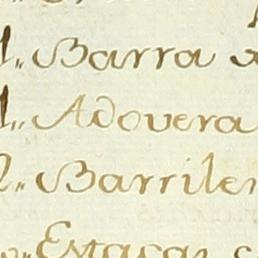 1,, Barra
1,, Adovera
2,, Barriles
Estacas